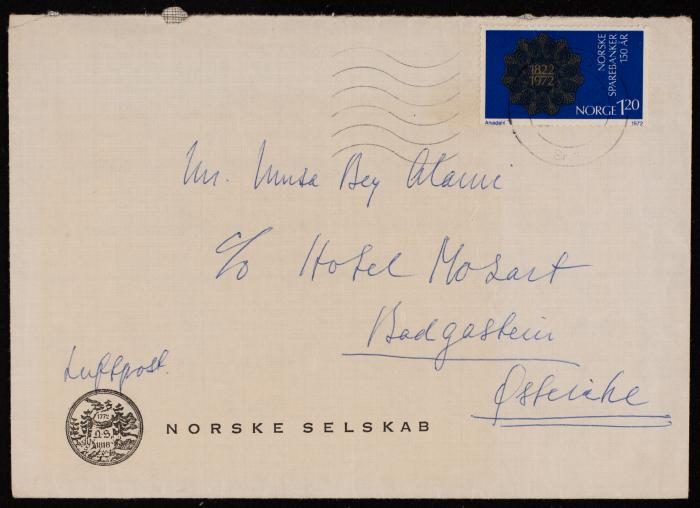 1822
1972
NORSKE
SPAREBANKER
150 ÅR
NORGE 120
1972
Mr. Musa Bey Alami
c/o Hotel Mozart
Badgastein
Østerike
Luftpost.
1772
N.S.
1818
NORSKE SELSKAB